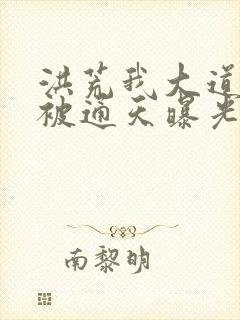 洪荒我大道
被通天曝光
南黎明